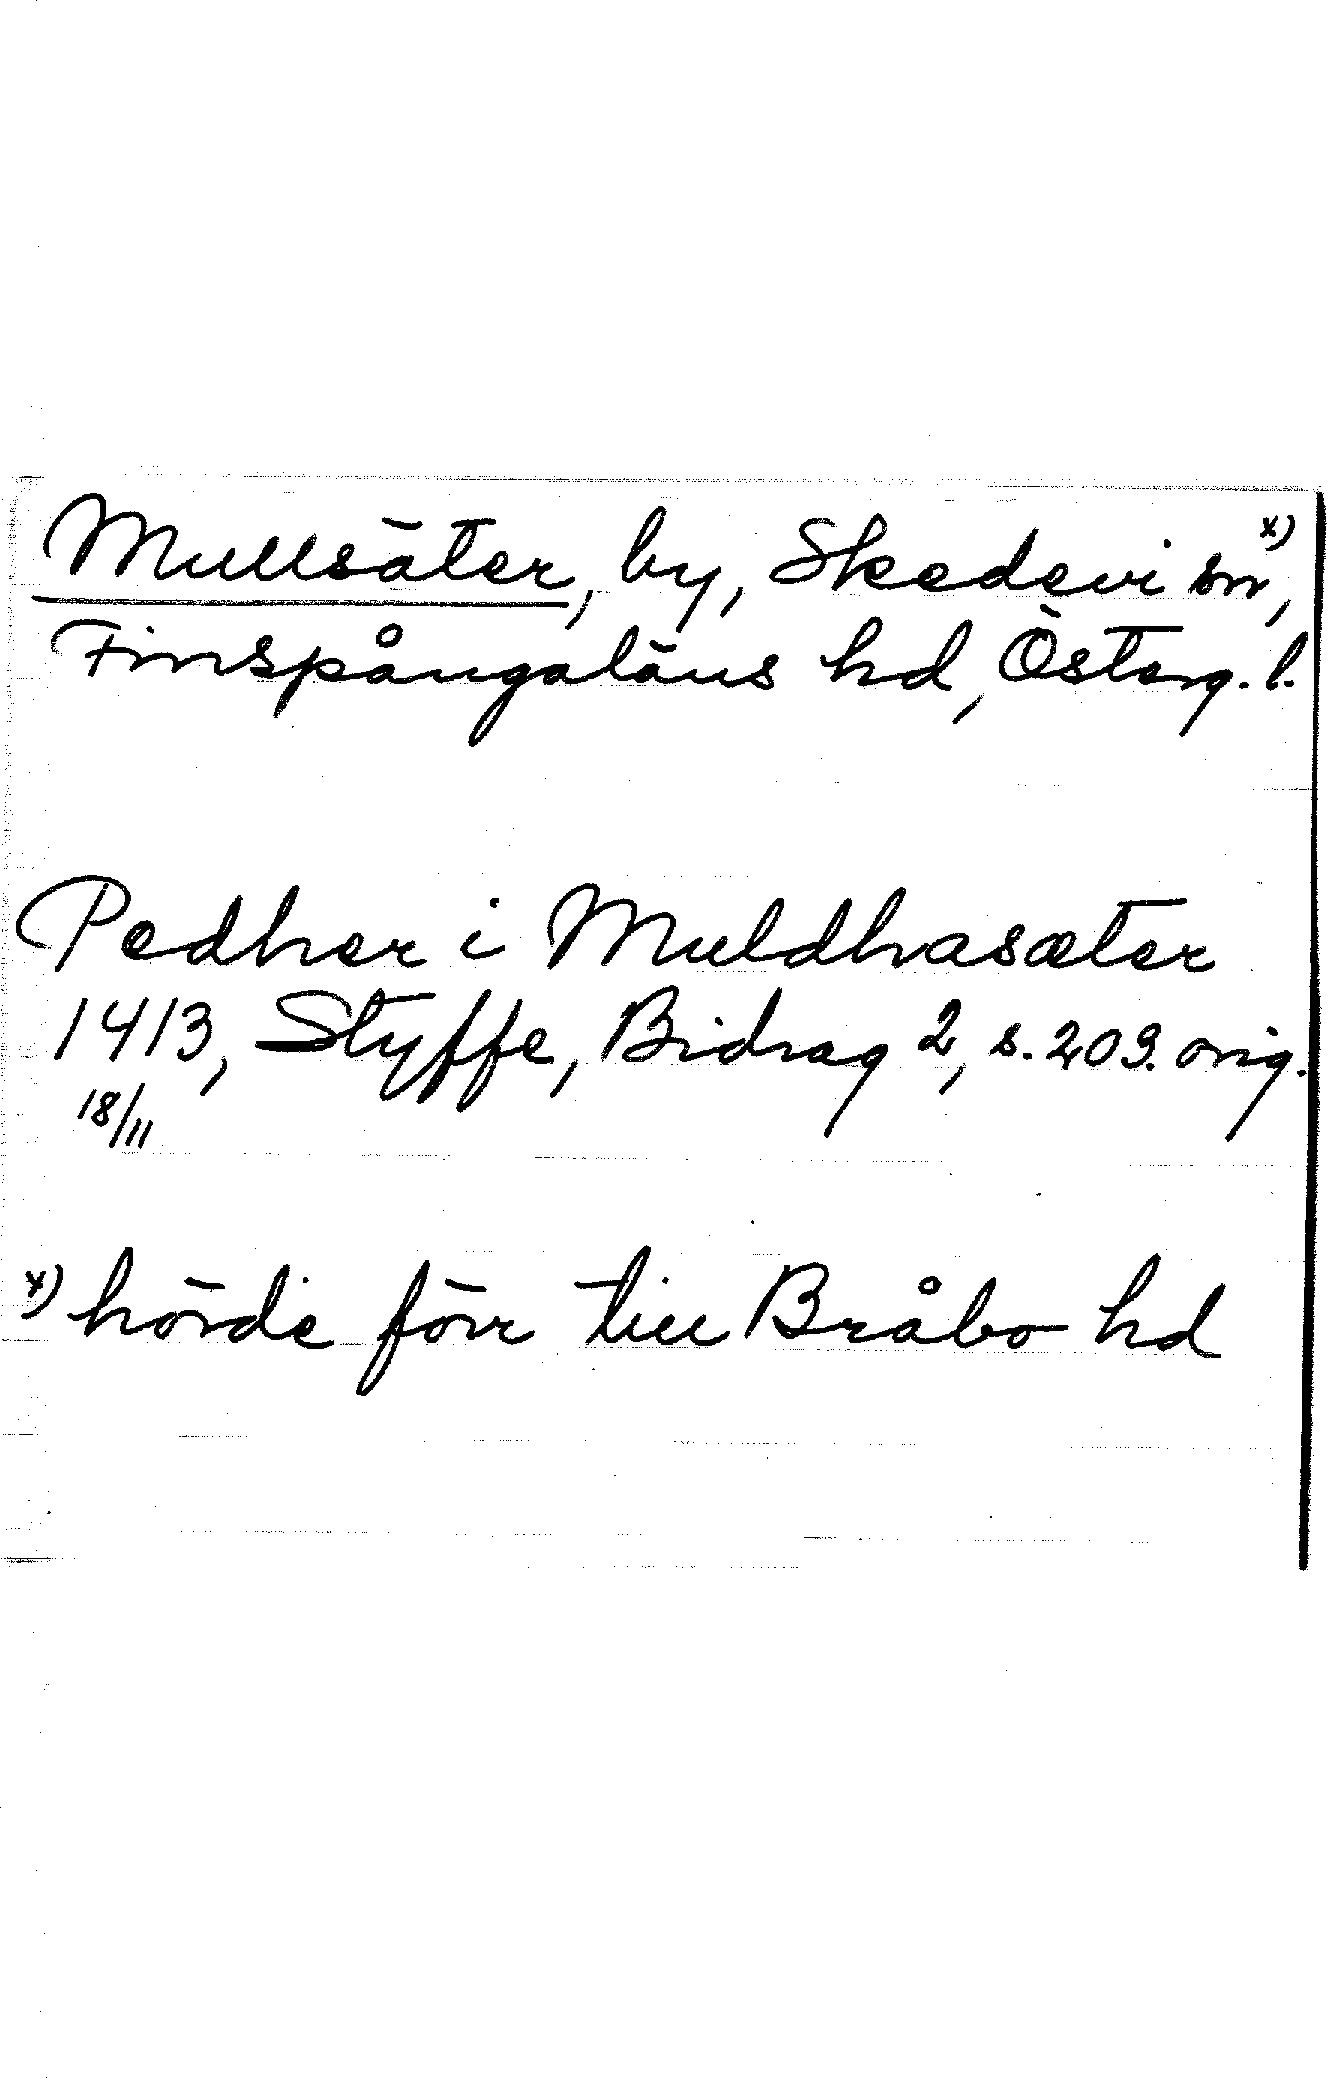 Mullsäter, by, Skedevi sn x),
Finspångaläns hd, Österg. l.
Pedher i Muldhasæter
1413, Styffe, Bidrag 2, s. 209. orig.
18/11
x) hörde förr till Bråbo hd